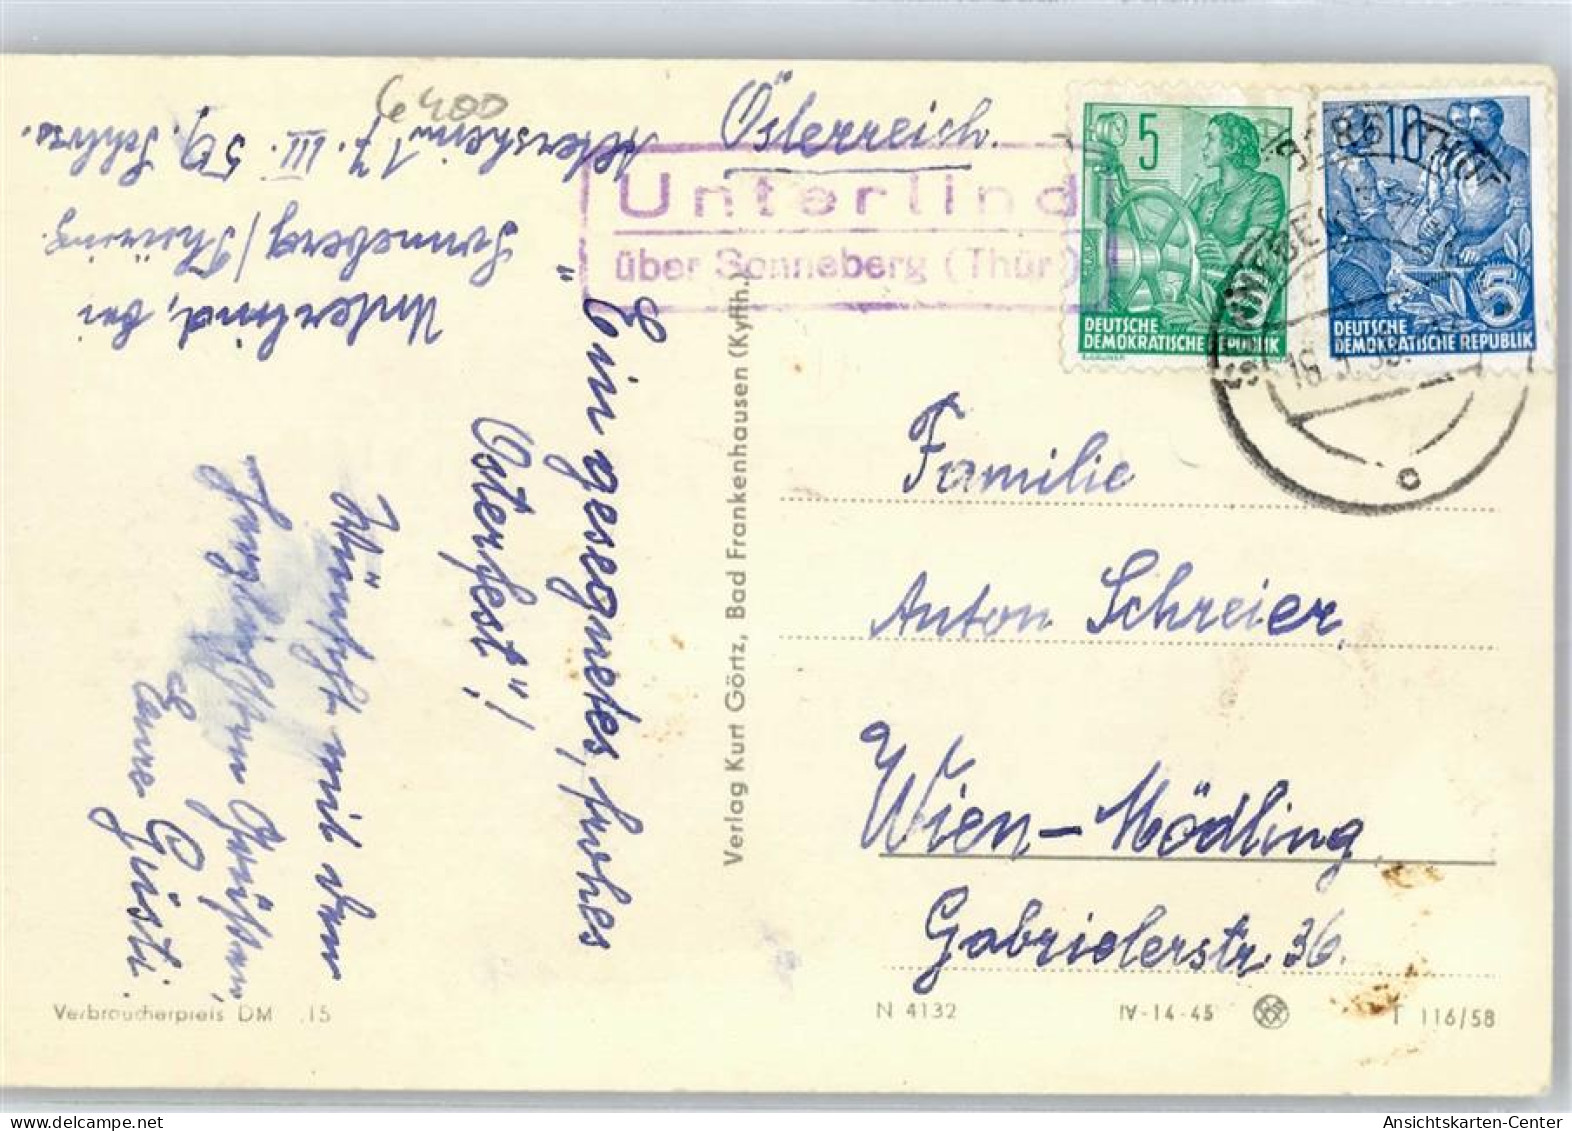 6400
Österreich.
Unterlind
über Sonneberg (Thür)
5
DEUTSCHE
DEMOKRATISCHE REPUBLIK
10
5
DEUTSCHE
DEMOKRATISCHE REPUBLIK
17. III. 59.
Unterlind, bei
Sonneberg/Thüring.
"Ein gesegnetes, frohes
Osterfest"!
Wünscht mit den
herzlichsten Grüßen,
Eure Gusti.
Verlag Kurt Görtz, Bad Frankenhausen (Kyffh.)
Familie
Anton Schreier,
Wien-Mödling
Gabrielerstr. 36.
Verbraucherpreis DM .15
N 4132
IV-14-45
T 116/58
Ansichtskarten-Center